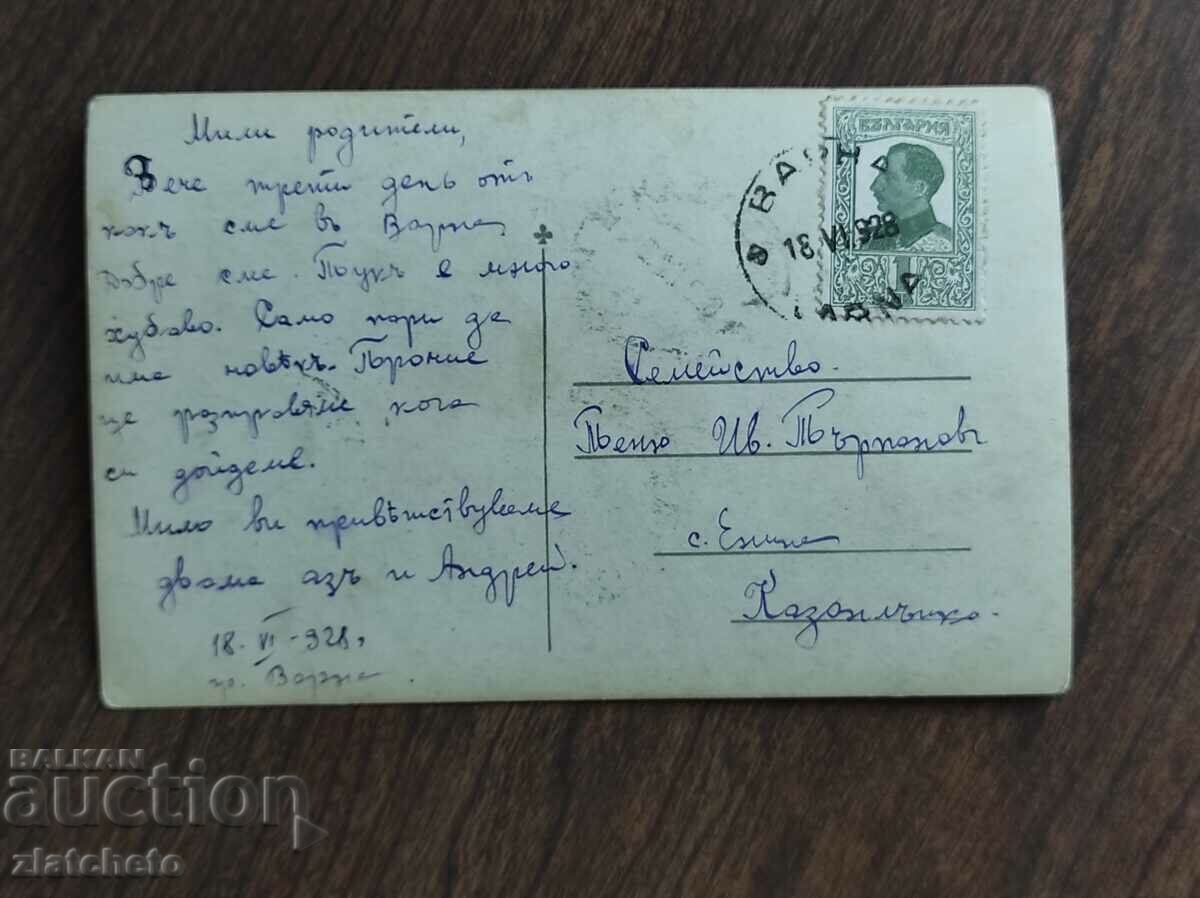 Мили родители,
Вече трети день отъ
какъ сме въ Варна
Добре сме. Тукъ е много
хубаво. Само пари да
има човѣкъ.
ще разправяме кога
си дойдеме.
Мило ви привѣтствуваме
двама азъ и Андрей.
18. VI - 928,
гр. Варна.
БЪЛГАРИЯ
1
ВАРНА
18.VI.928
VARNA
Семейство
Пеню Ив. Търпановъ
с. Енина
Казанлъшко.
BALKAN
auction
zlatcheto